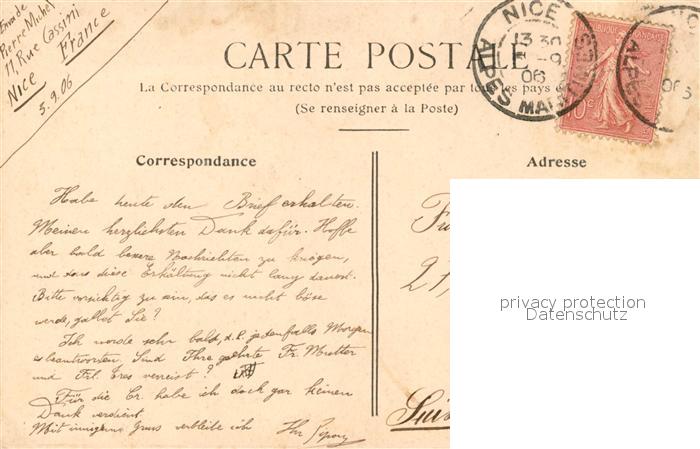 Envoi de
Pierre Michel
11, Rue Cassini
Nice
France
5.9.06
NICE
13 30
5 -9
06
ALPES MARIT
CARTE POSTALE
La Correspondance au recto n'est pas acceptée par tous les pays
(Se renseigner à la Poste)
Correspondance
Adresse
Habe heute den Brief erhalten.
Meinen herzlichsten Dank dafür. Hoffe
aber bald bessere Nachrichten zu kriegen,
und dass diese Erkältung nicht lang dauert.
Bitte vorsichtig zu sein, das es nicht böse
werde, gallet Sie?
Ich werde sehr bald, d.h. jedenfalls Morgen
es beantworten. Sind Ihre geehrte Fr. Mutter
und Frl. verreist?
Für die Cr. habe ich doch gar keinen
Dank verdient.
Mit innigem Gruss verbleibe ich Ihr
21,
privacy protection
Datenschutz